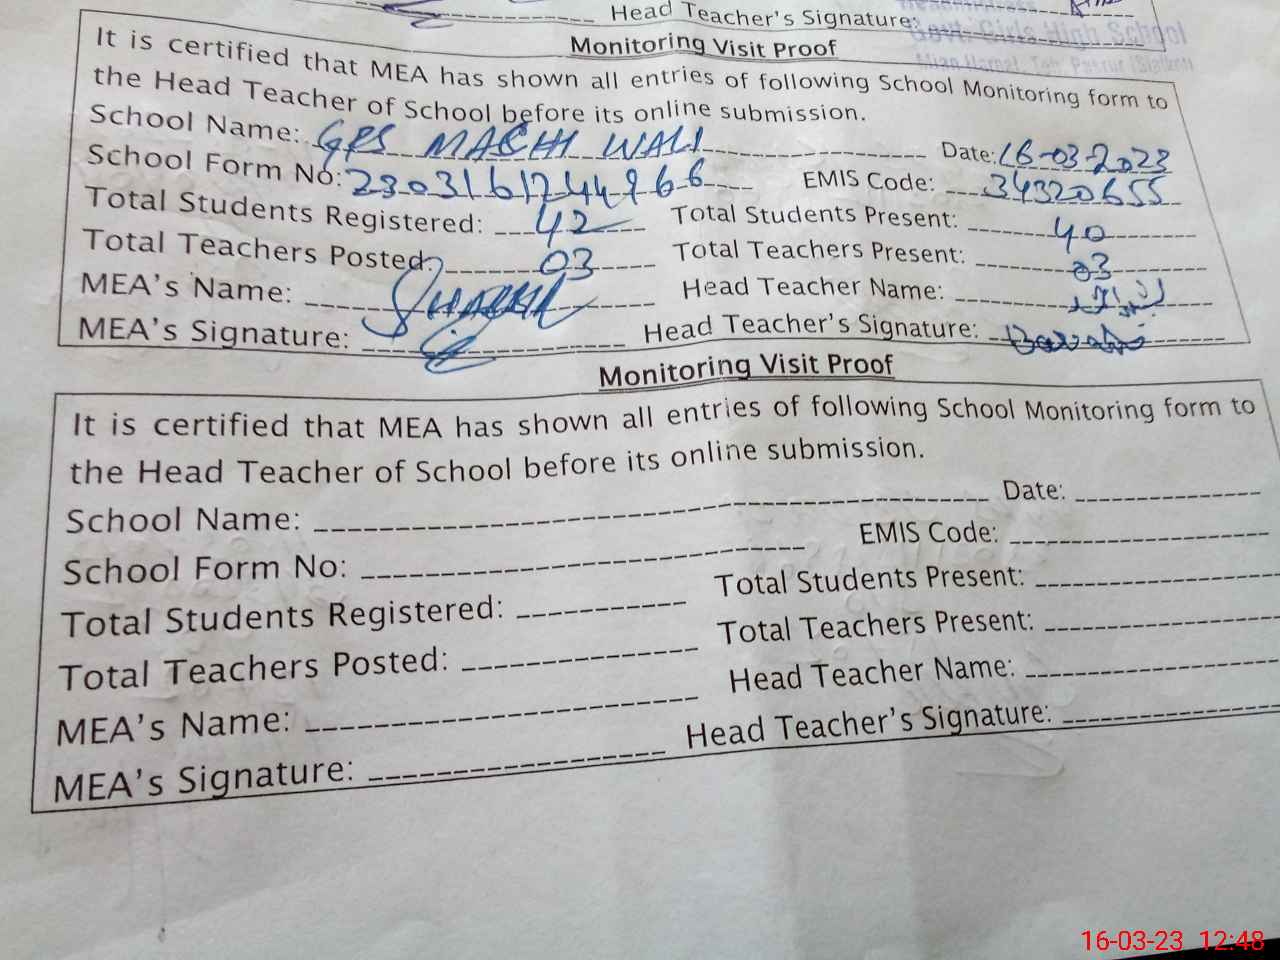 Head Teacher's Signature:
Govt. Girls High School
Monitoring Visit Proof
It is certified that MEA has shown all entries of following School Monitoring form to
the Head Teacher of School before its online submission.
School Name: GPS MACHI WALI Date: 16-03-2023
School Form No: 23031617244966 EMIS Code: 34320655
Total Students Registered: 42 Total Students Present: 40
Total Teachers Posted: 03 Total Teachers Present: 03
MEA's Name: Head Teacher Name:
MEA's Signature: Head Teacher's Signature:
Monitoring Visit Proof
It is certified that MEA has shown all entries of following School Monitoring form to
the Head Teacher of School before its online submission.
School Name: Date:
School Form No: EMIS Code:
Total Students Registered: Total Students Present:
Total Teachers Posted: Total Teachers Present:
MEA's Name: Head Teacher Name:
MEA's Signature: Head Teacher's Signature:
16-03-23 12:48